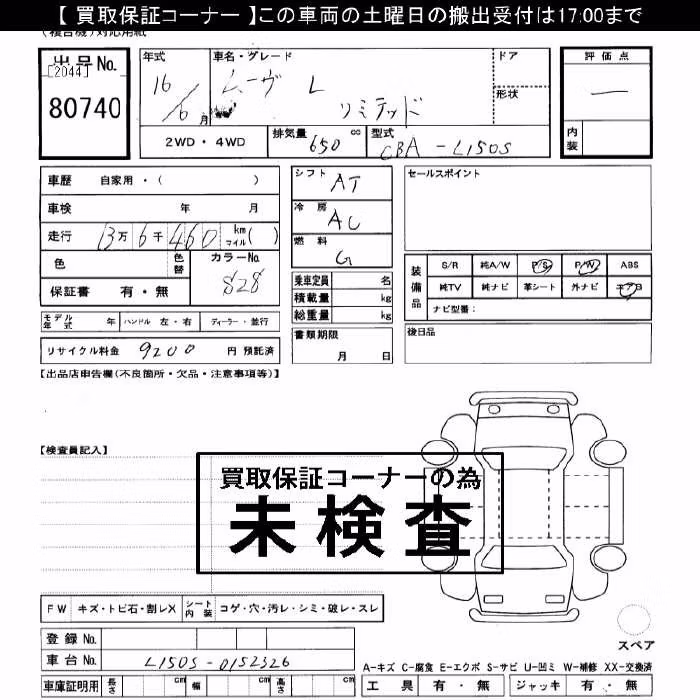 【 買取保証コーナー 】この車両の土曜日の搬出受付は17:00まで
(複合機)対応用紙
出品No.
[2044]
80740
年式
16/6月
車名・グレード
ムーヴ L
リミテッド
ドア
形状
評価点
—
内装
2WD・4WD
排気量 650 cc
型式 CBA-L150S
車歴 自家用・( )
車検 年 月
走行 13万6千460 km マイル( )
色
色替
カラーNo.
S28
保証書 有・無
シフト AT
冷房 AC
燃料 G
乗車定員 名
積載量 kg
総重量 kg
セールスポイント
装備品
S/R 純A/W P/S P/W ABS
純TV 純ナビ 革シート 外ナビ エアB
ナビ型番:
モデル年式 年 ハンドル 左・右 ディーラー・並行
リサイクル料金 9200 円 預託済
書類期限
月 日
後日品
【出品店申告欄(不良箇所・欠品・注意事項等)】
【検査員記入】
買取保証コーナーの為
未検査
FW キズ・トビ石・割レX シート内装 コゲ・穴・汚レ・シミ・破レ・スレ
スペア
登録No.
車台No. L150S-0152326
車庫証明用 長さ cm 幅 cm 高さ cm
A-キズ C-腐食 E-エクボ S-サビ U-凹ミ W-補修 XX-交換済
工具 有・無 ジャッキ 有・無